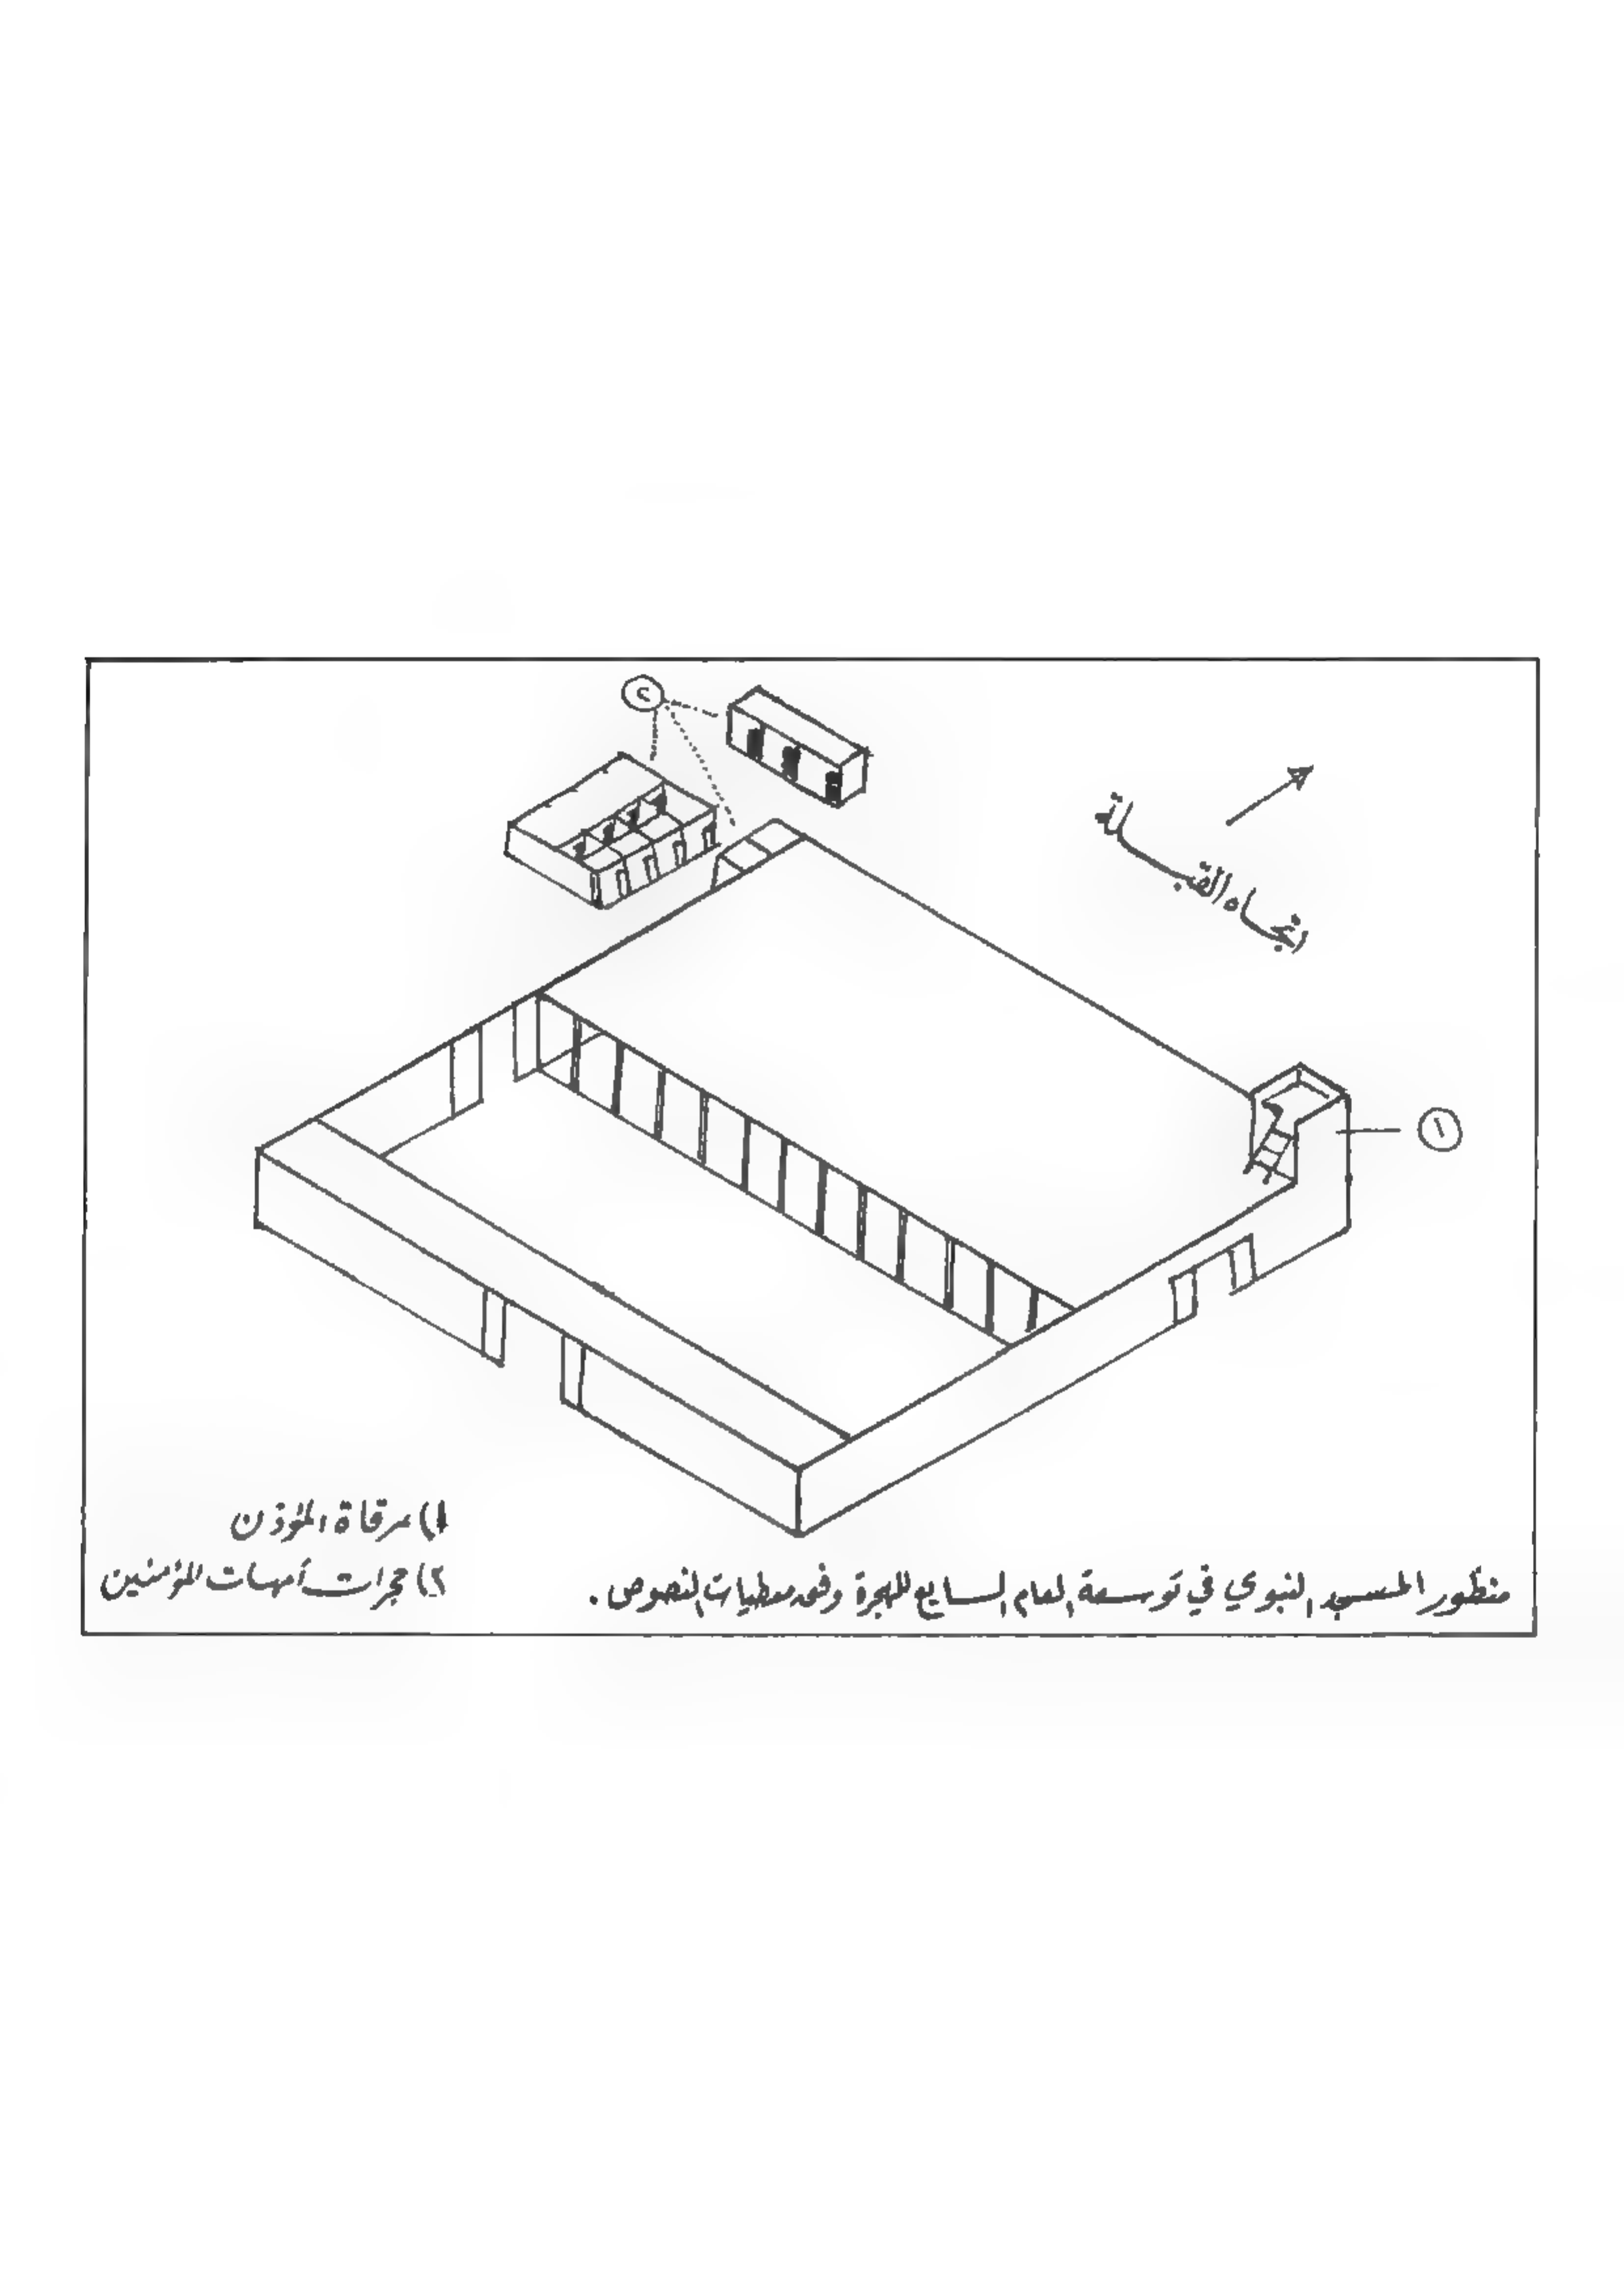 ٢
اتجاه القبلة
١
١) مرقاة المؤذن
٢) حجرات أمهات المؤمنين
منظور المسجد النبوي في توسعة العام السابع للهجرة وفق معطيات النصوص .